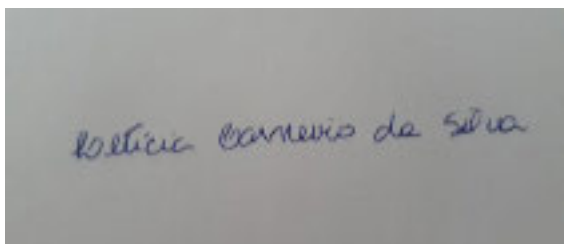 Letícia Carnevio da Silva